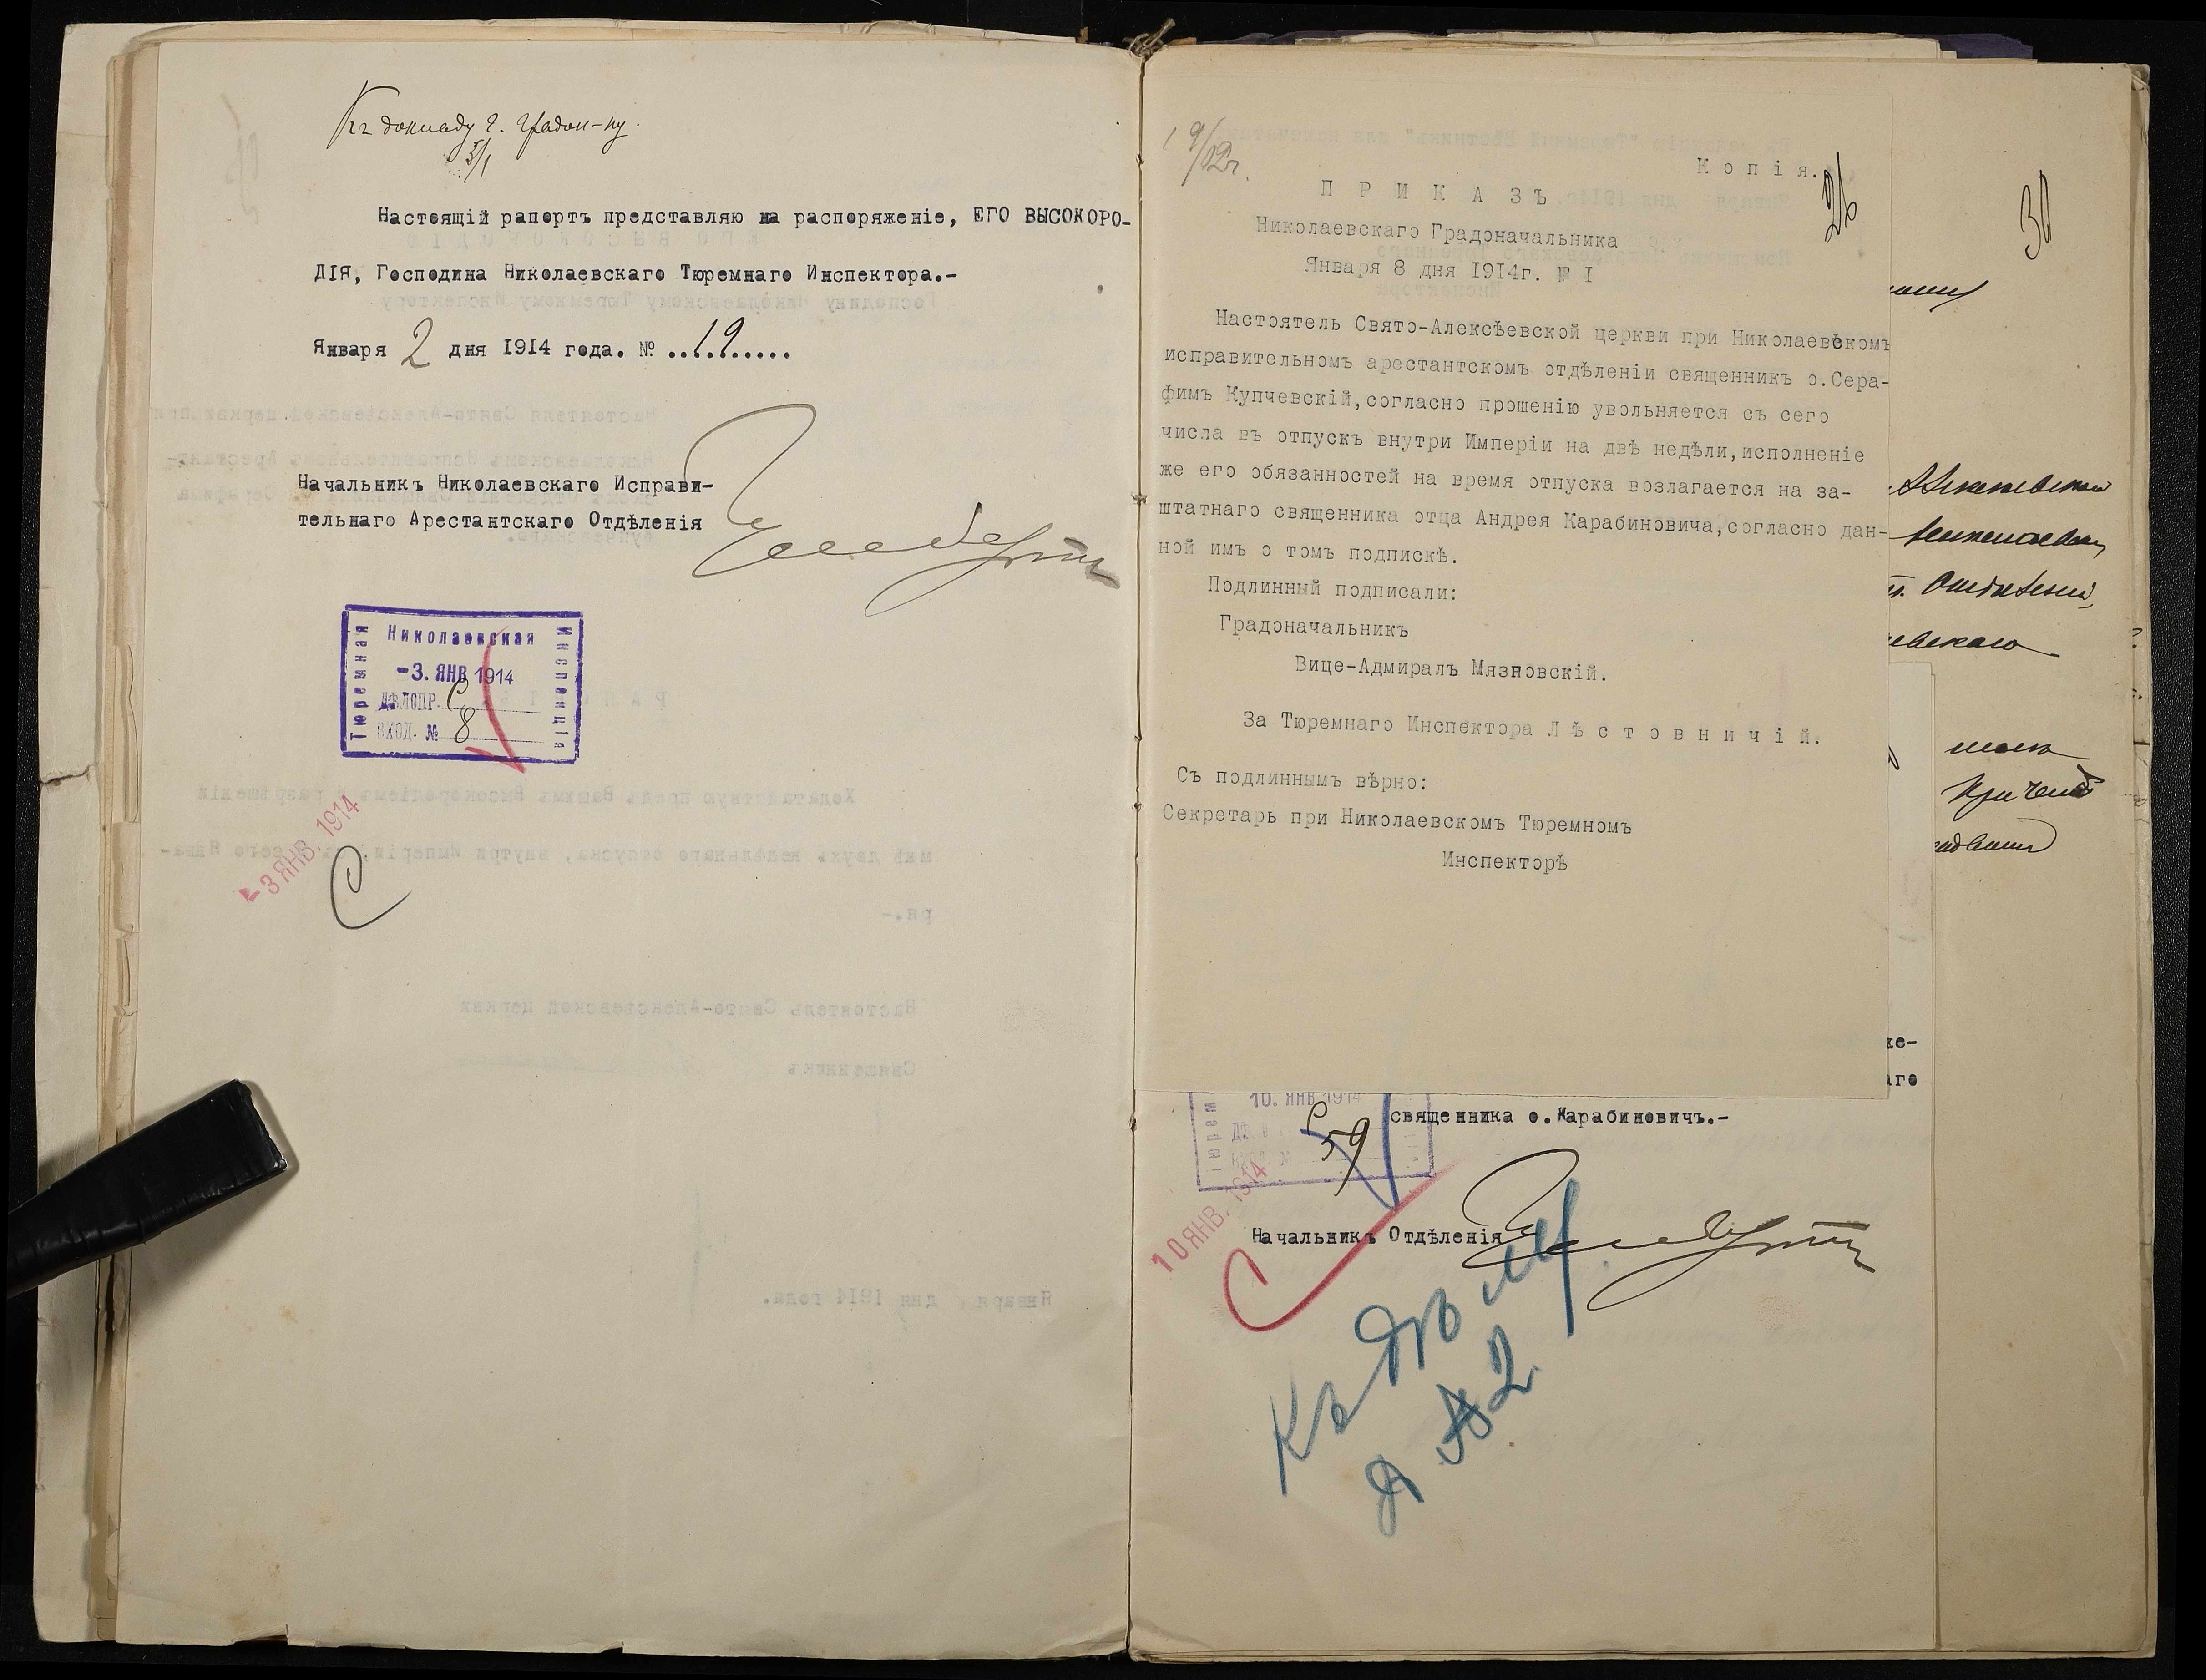 Къ докладу г. Градон-ку.
5/1
Настоящій рапортъ представляю на распоряженіе, ЕГО ВЫСОКОРО-
ДІЯ, Господина Николаевскаго Тюремнаго Инспектора.-
Января 2 дня 1914 года. № ..19.....
Начальникъ Николаевскаго Исправи-
тельнаго Арестантскаго Отдѣленія
Николаевская
Тюремная
Инспекція
-3. ЯНВ 1914
ДѢЛОПР. С
ВХОД. № 8
-3 ЯНВ. 1914
С
26
Копія.
ПРИКАЗЪ
Николаевскаго Градоначальника
Января 8 дня 1914г. № I
Настоятель Свято-Алексѣевской церкви при Николаевскомъ
исправительномъ арестантскомъ отдѣленіи священникъ о.Сера-
фимъ Купчевскій,согласно прошенію увольняется съ сего
числа въ отпускъ внутри Имперіи на двѣ недѣли,исполненіе
же его обязанностей на время отпуска возлагается на за-
штатнаго священника отца Андрея Карабиновича,согласно дан-
ной имъ о томъ подпискѣ.
Подлинный подписали:
Градоначальникъ
Вице-Адмиралъ Мязновскій.
За Тюремнаго Инспектора Лѣстовничій.
Съ подлиннымъ вѣрно:
Секретарь при Николаевскомъ Тюремномъ
Инспекторѣ
же-
аго
священника о. Карабиновичъ.-
10. ЯНВ 1914
59
10 ЯНВ. 1914
Начальникъ Отдѣленія
Къ дѣлу
30